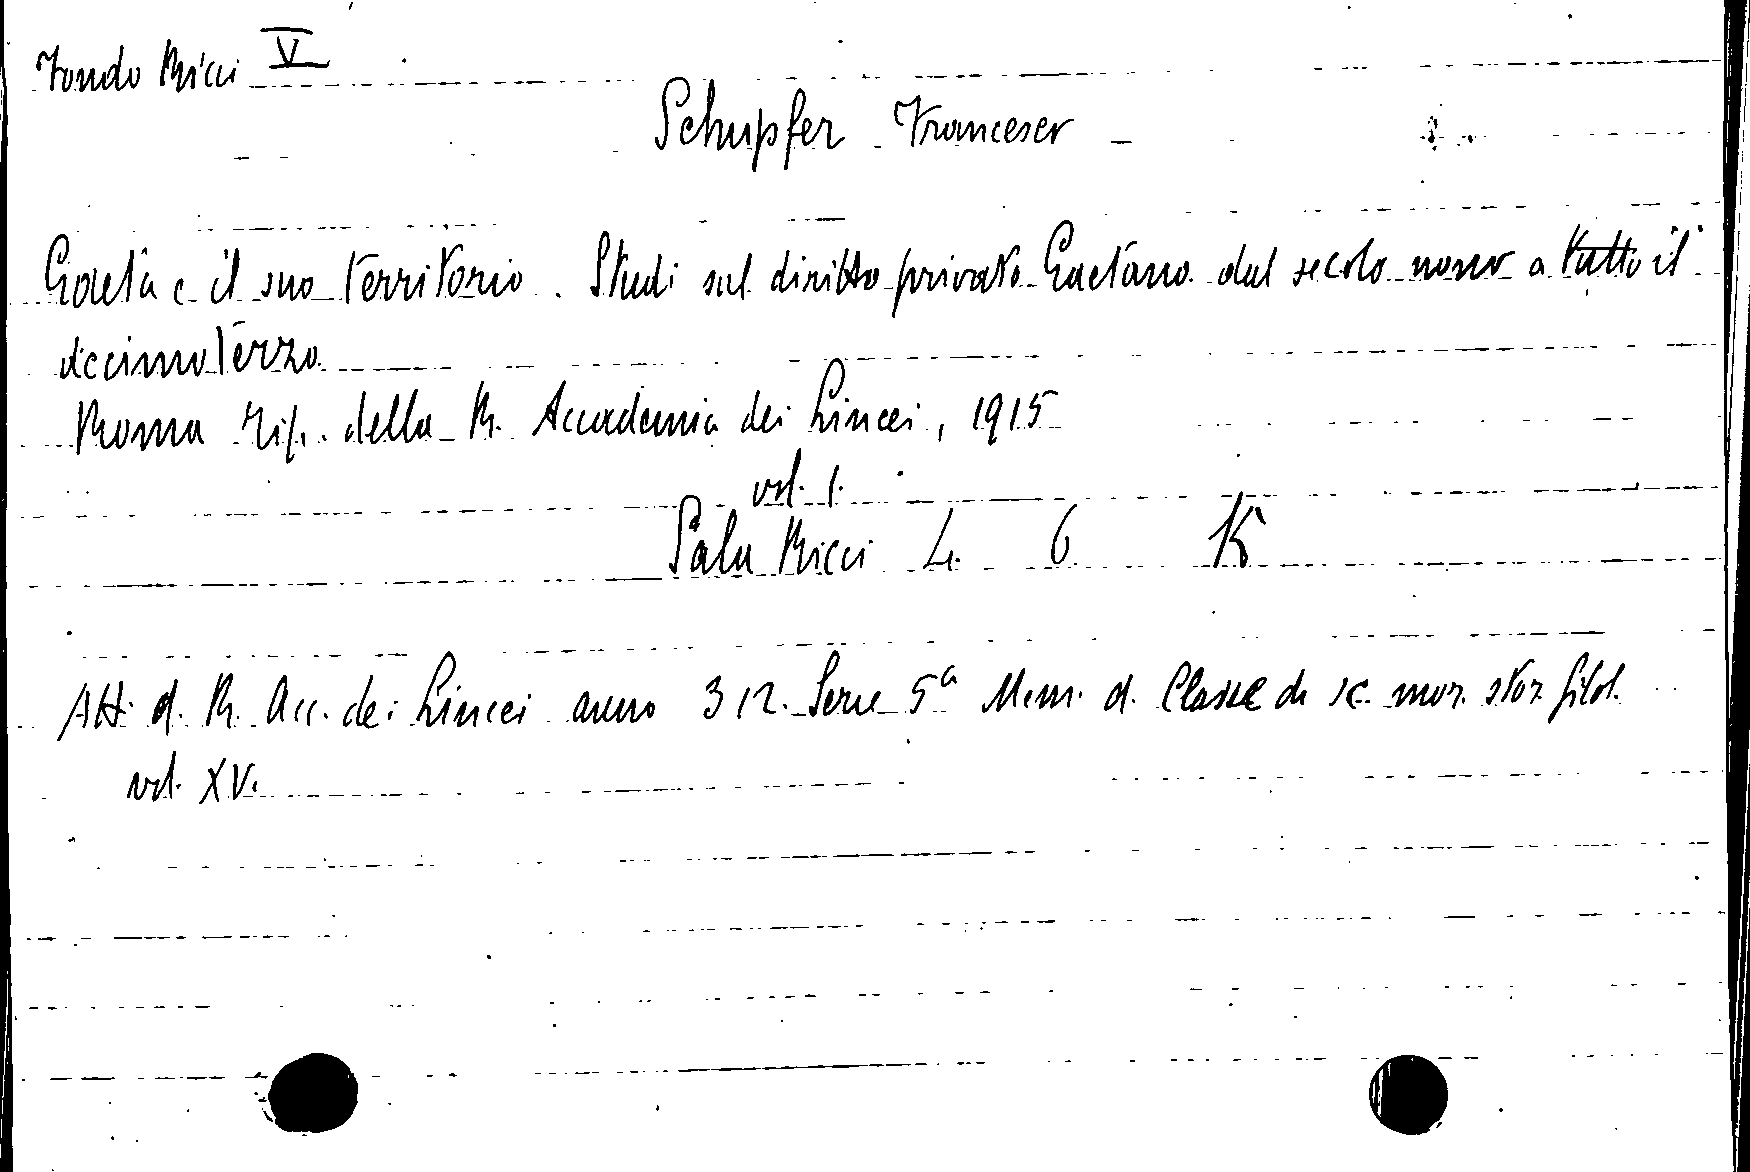 Fondo Ricci V
Schupfer Francesco
Gaeta e il suo territorio. Studi sul diritto privato Gaetano dal secolo nono a tutto il
decimoterzo
Roma Tip. della R. Accademia dei Lincei, 1915
vol. 1.
Sala Ricci L. 6 K
Atti d. R. Acc. dei Lincei anno 312. Serie 5a Mem. d. Classe di sc. mor. stor. filol.
vol. XV.